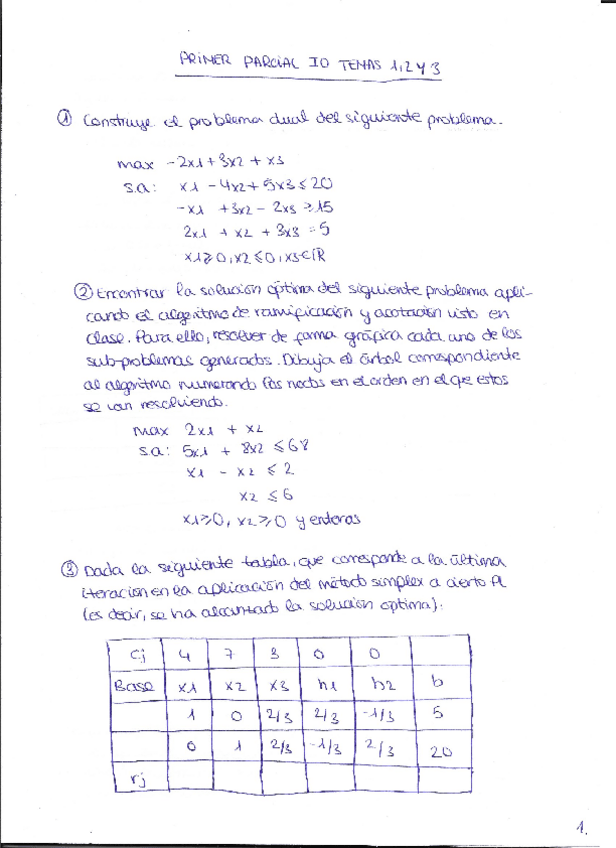 PRIMER PARCIAL IO TEMAS 1,2 Y 3
① Construye el problema dual del siguiente problema.
max -2x1 + 3x2 + x3
s.a: x1 - 4x2 + 5x3 ≤ 20
-x1 + 3x2 - 2x3 ≥ 15
2x1 + x2 + 3x3 = 5
x1 ≥ 0, x2 ≤ 0, x3 ∈ ℝ
② Encontrar la solución óptima del siguiente problema apli-
cando el algoritmo de ramificación y acotación visto en
clase. Para ello, resolver de forma gráfica cada uno de los
sub-problemas generados. Dibuja el árbol correspondiente
al algoritmo numerando los nodos en el orden en el que estos
se van resolviendo.
max 2x1 + x2
s.a: 5x1 + 8x2 ≤ 68
x1 - x2 ≤ 2
x2 ≤ 6
x1 ≥ 0, x2 ≥ 0 y enteras
③ Dada la siguiente tabla, que corresponde a la última
iteración en la aplicación del método simplex a cierto PL
(es decir, se ha alcanzado la solución óptima):
Cj 4 7 3 0 0
Base x1 x2 x3 h1 h2 b
1 0 2/3 2/3 -1/3 5
0 1 2/3 -1/3 2/3 20
rj
1.